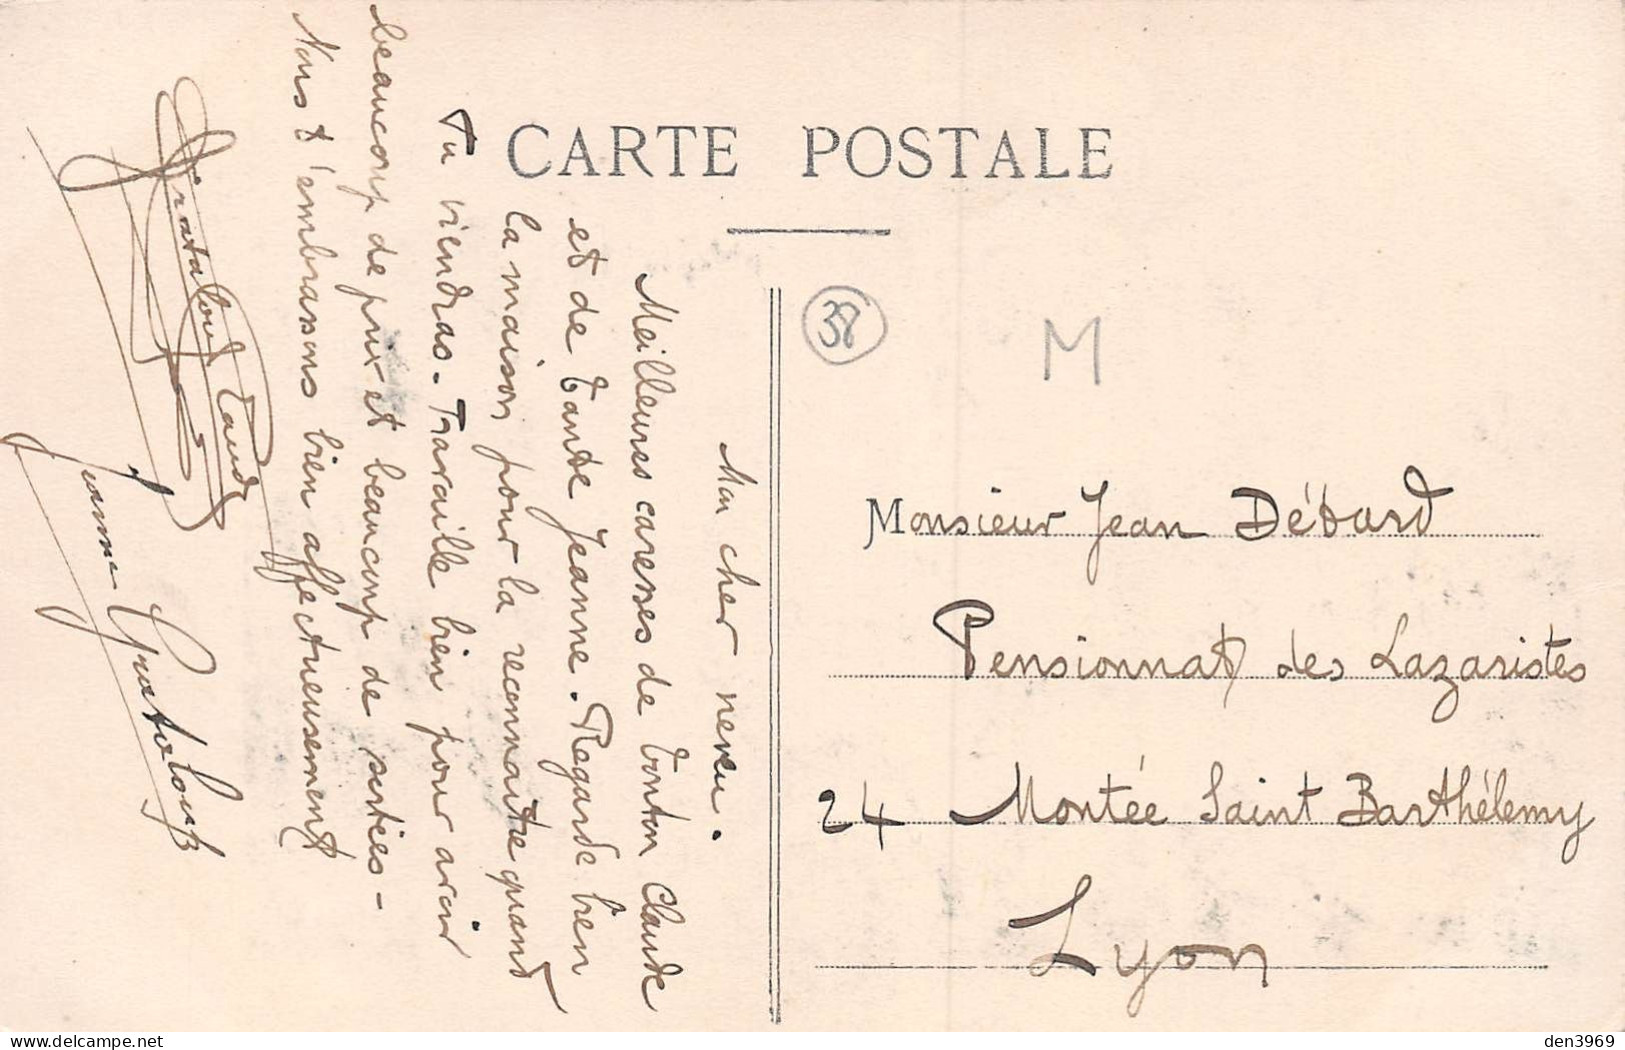 CARTE POSTALE
38
M
Mon cher neveu.
Meilleures caresses de tonton Claude
et de tante Jeanne. Regarde bien
la maison pour la reconnaitre quand
Tu viendras. Travaille bien pour avoir
beaucoup de prix et beaucoup de sorties -
Nous t'embrassons bien affectueusement
Grataloup Claude
Jeanne Grataloup
Monsieur Jean Débard
Pensionnat des Lazaristes
24 Montée Saint Barthélemy
Lyon
www.delcampe.net
den3969